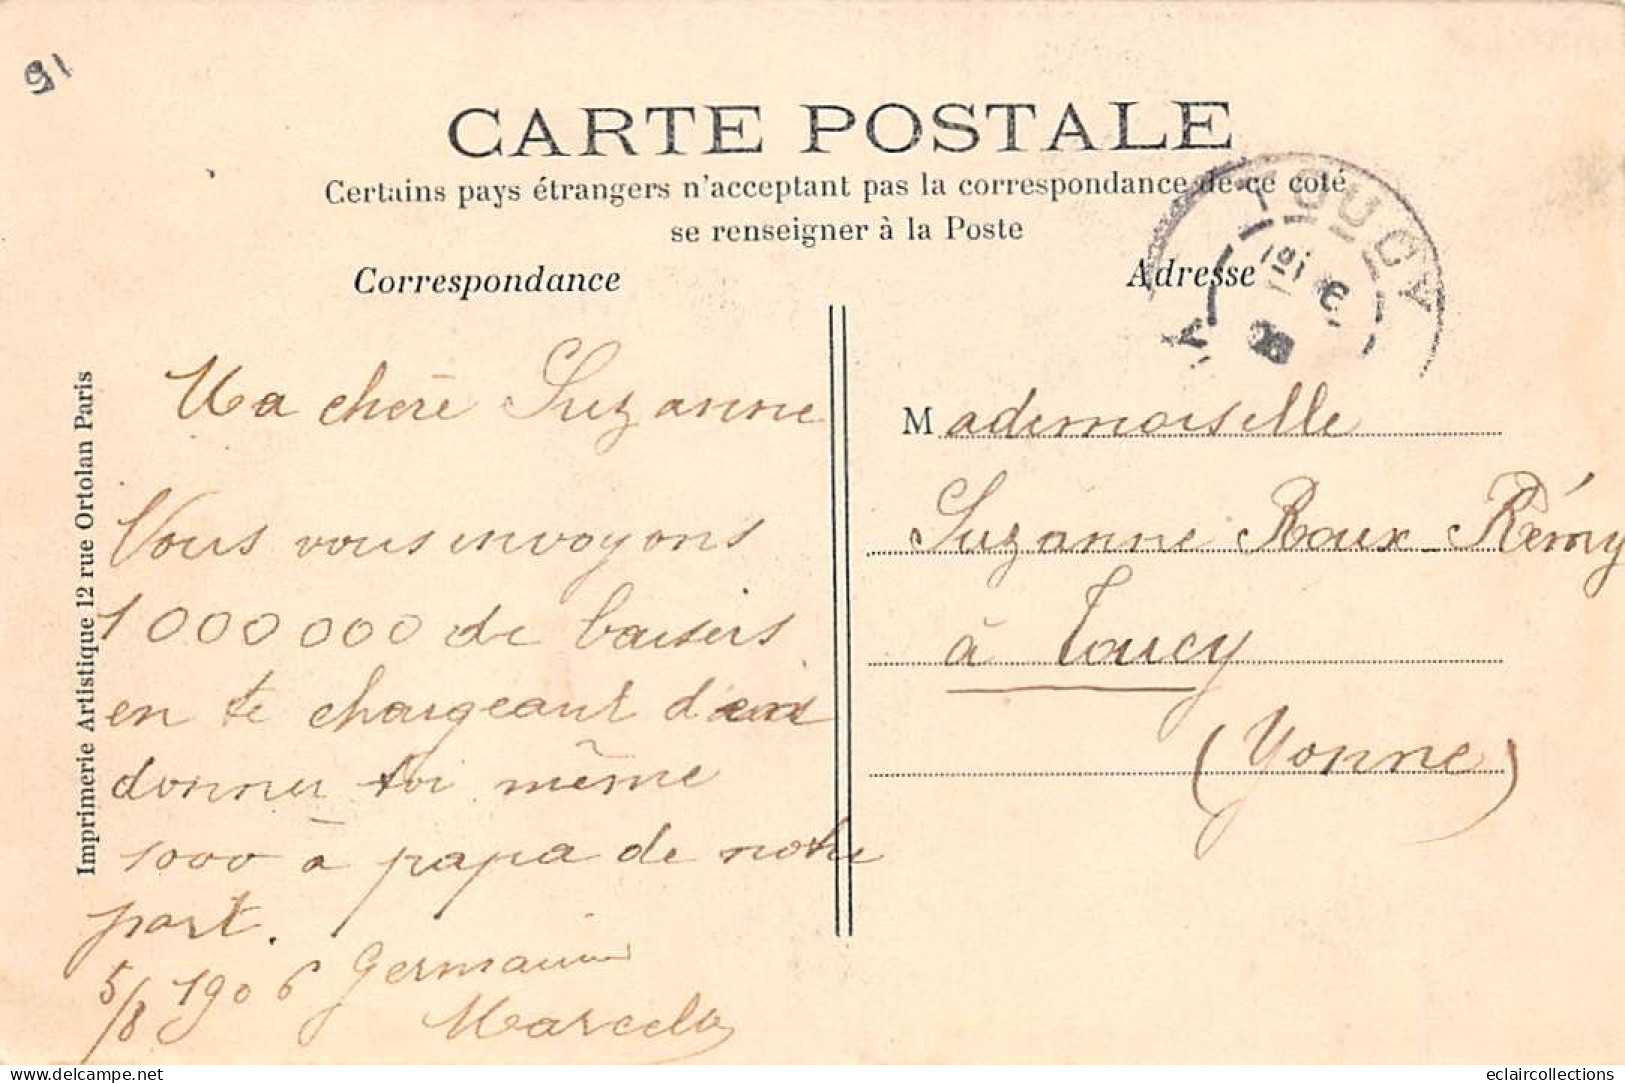 91
CARTE POSTALE
Certains pays étrangers n'acceptant pas la correspondance de ce coté
se renseigner à la Poste
Correspondance
Adresse
TOUCY
Imprimerie Artistique 12 rue Ortolan Paris
Ma chère Suzanne
Nous vous envoyons
1000 000 de baisers
en te chargeant d'en
donner toi même
1000 à papa de notre
part.
5/8 1906 Germaine
Marcelle
Mademoiselle
Suzanne Roux-Rémy
à Toucy
(Yonne)
delcampe.net
eclaircollections